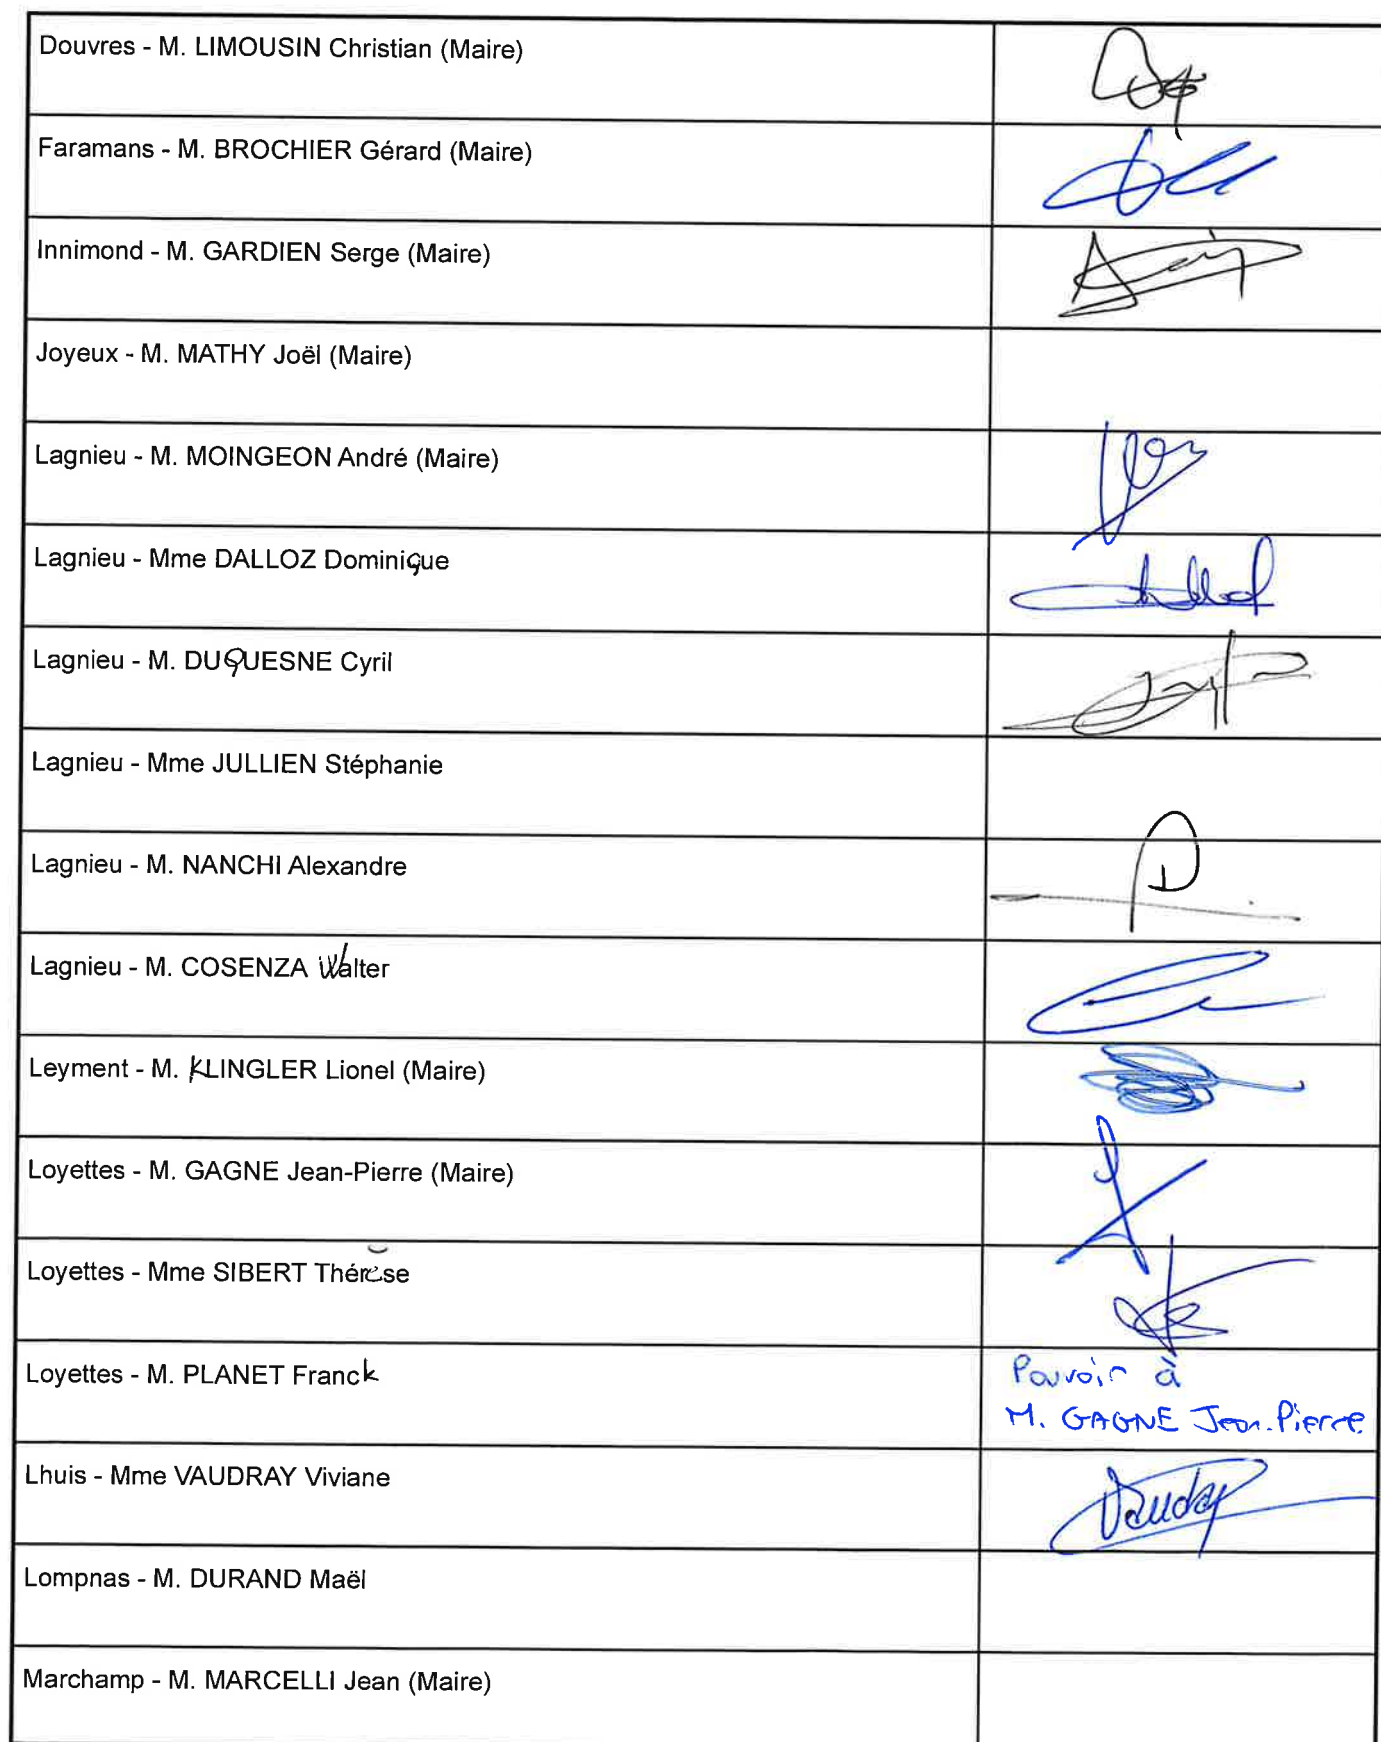 Douvres - M. LIMOUSIN Christian (Maire)
Faramans - M. BROCHIER Gérard (Maire)
Innimond - M. GARDIEN Serge (Maire)
Joyeux - M. MATHY Joël (Maire)
Lagnieu - M. MOINGEON André (Maire)
Lagnieu - Mme DALLOZ Dominique
Lagnieu - M. DUQUESNE Cyril
Lagnieu - Mme JULLIEN Stéphanie
Lagnieu - M. NANCHI Alexandre
Lagnieu - M. COSENZA Walter
Leyment - M. KLINGLER Lionel (Maire)
Loyettes - M. GAGNE Jean-Pierre (Maire)
Loyettes - Mme SIBERT Thérèse
Loyettes - M. PLANET Franck
Pouvoir à
M. GAGNE Jean-Pierre
Lhuis - Mme VAUDRAY Viviane
Lompnas - M. DURAND Maël
Marchamp - M. MARCELLI Jean (Maire)